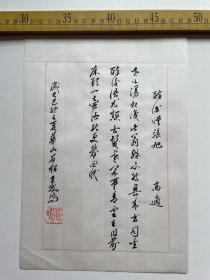 醉後贈張旭　高適
世上漫相識此翁殊不然興來書自聖
醉後語尤顛白髮老閑事青雲在目前
床頭一壺酒能更幾回眠
歲在己卯之夏華山